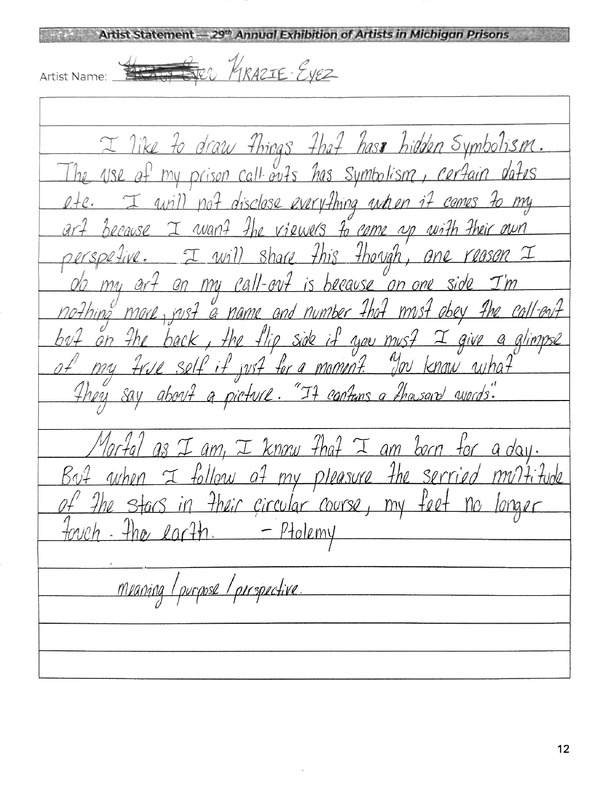 Artist Statement — 29th Annual Exhibition of Artists in Michigan Prisons
Artist Name: KRAZIE-EYEZ
I like to draw things that has hidden Symbolism.
The use of my prison call-outs has symbolism, certain dates
etc. I will not disclose everything when it comes to my
art because I want the viewers to come up with their own
perspetive. I will share this though, one reason I
do my art on my call-out is because on one side I'm
nothing more, just a name and number that must obey the call-out
but on the back, the flip side if you must I give a glimpse
of my true self if just for a moment. You know what
they say about a picture. "It contains a thousand words".
Mortal as I am, I know that I am born for a day.
But when I follow at my pleasure the serried multitude
of the stars in their circular course, my feet no longer
touch the earth. - Ptolemy
meaning/purpose/perspective.
12